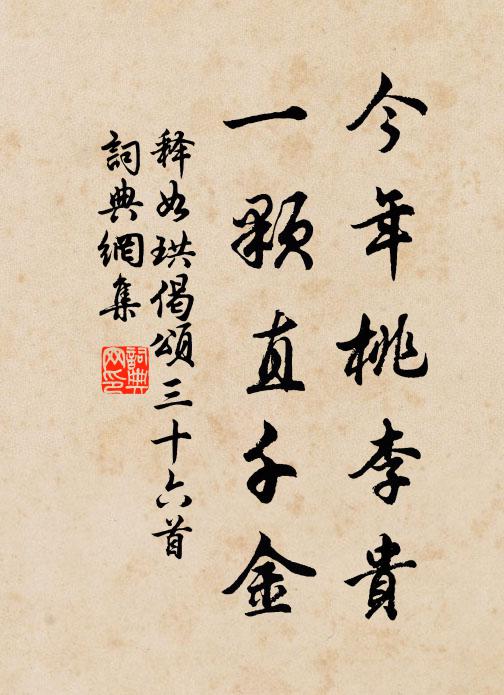 今年桃李貴
一顆直千金
释如珙偈頌三十六首
詞典網集
詞典网印